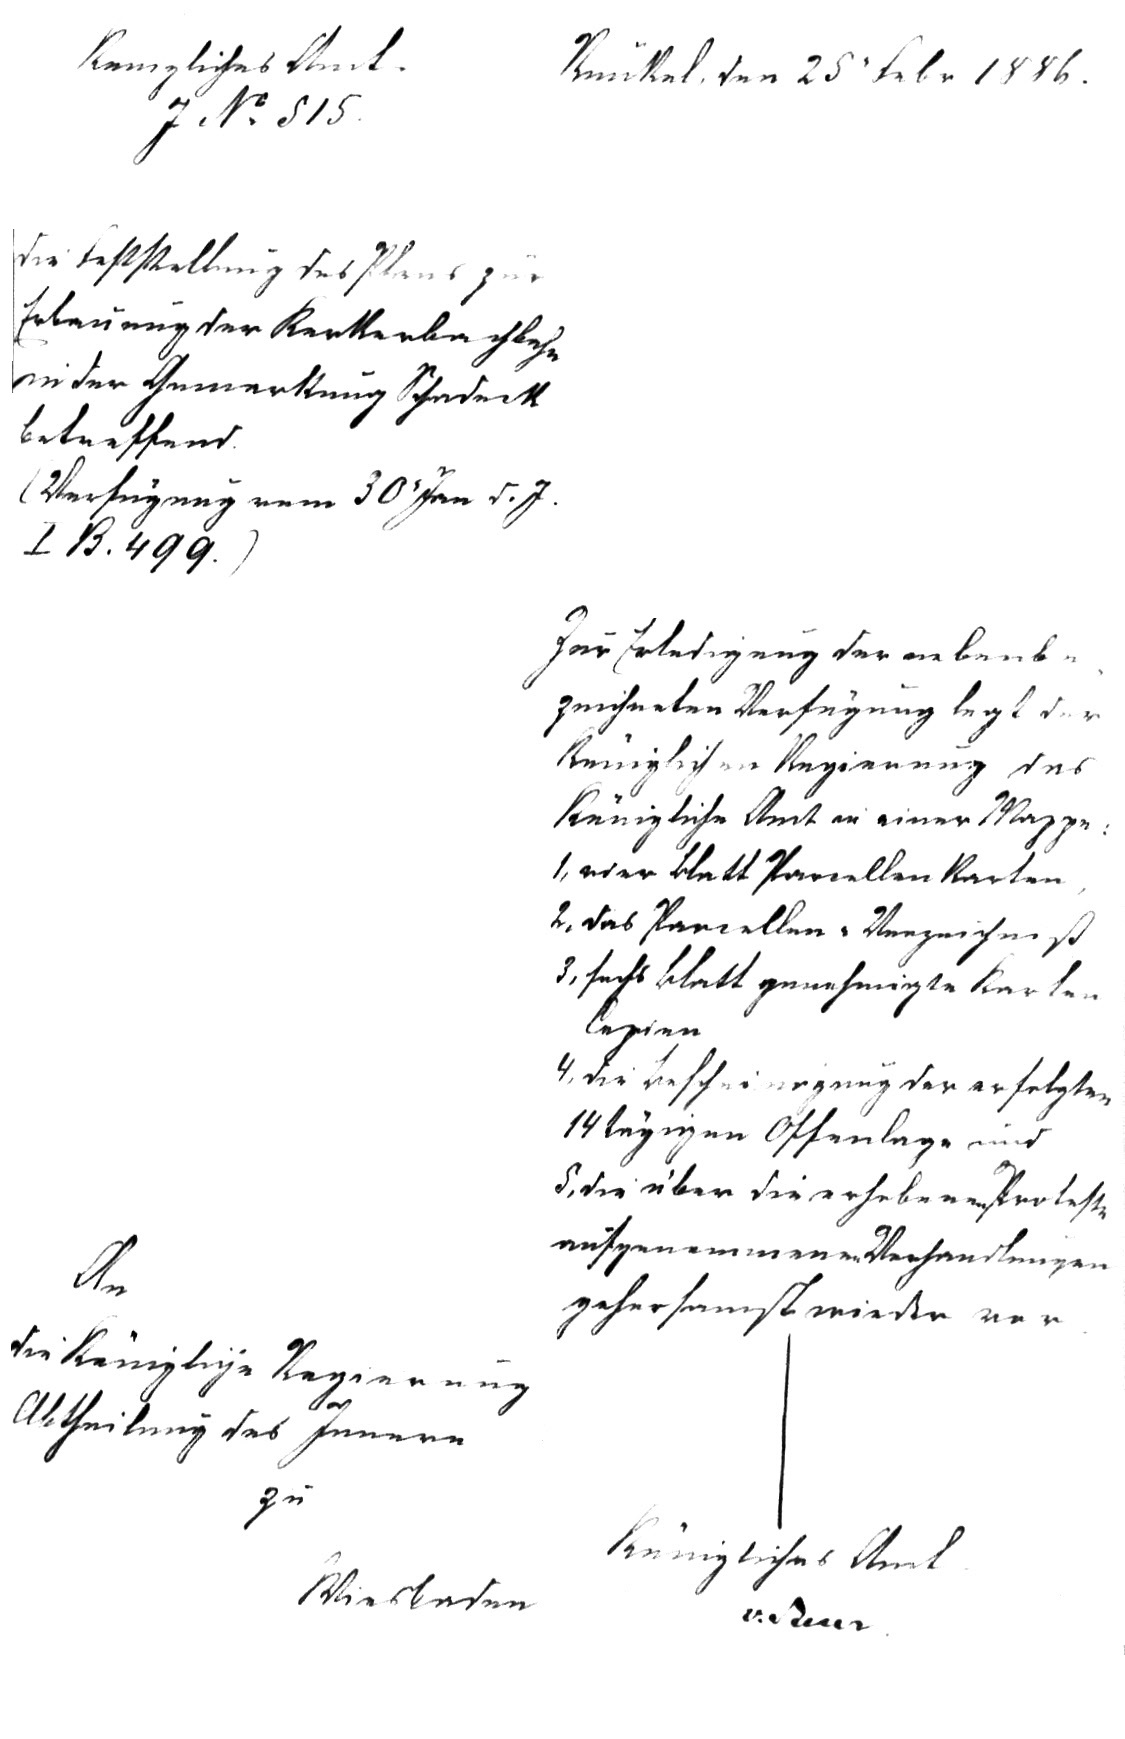 Königliches Amt.
J. No. 515.
Runkel, den 25. Febr 1886.
die Feststellung des Plans zur
Erbauung der Kerkerbachbahn
in der Gemarkung Schadeck
betreffend.
(Verfügung vom 30. Jan d. J.
I B. 499.)
Zur Erledigung der nebenbe
zeichneten Verfügung legt der
Königlichen Regierung das
Königliche Amt in einer Mappe:
1, vier Blatt Parcellen Karten,
2, das Parcellen-Verzeichniß
3, sechs Blatt genehmigte Karten
Copien
4, die Bescheinigung der erfolgten
14 tägigen Offenlage und
5, die über die erhobenen Proteste
aufgenommenen Verhandlungen
gehorsamst wieder vor
An
die Königliche Regierung
Abtheilung des Innern
zu
Wiesbaden
Königliches Amt